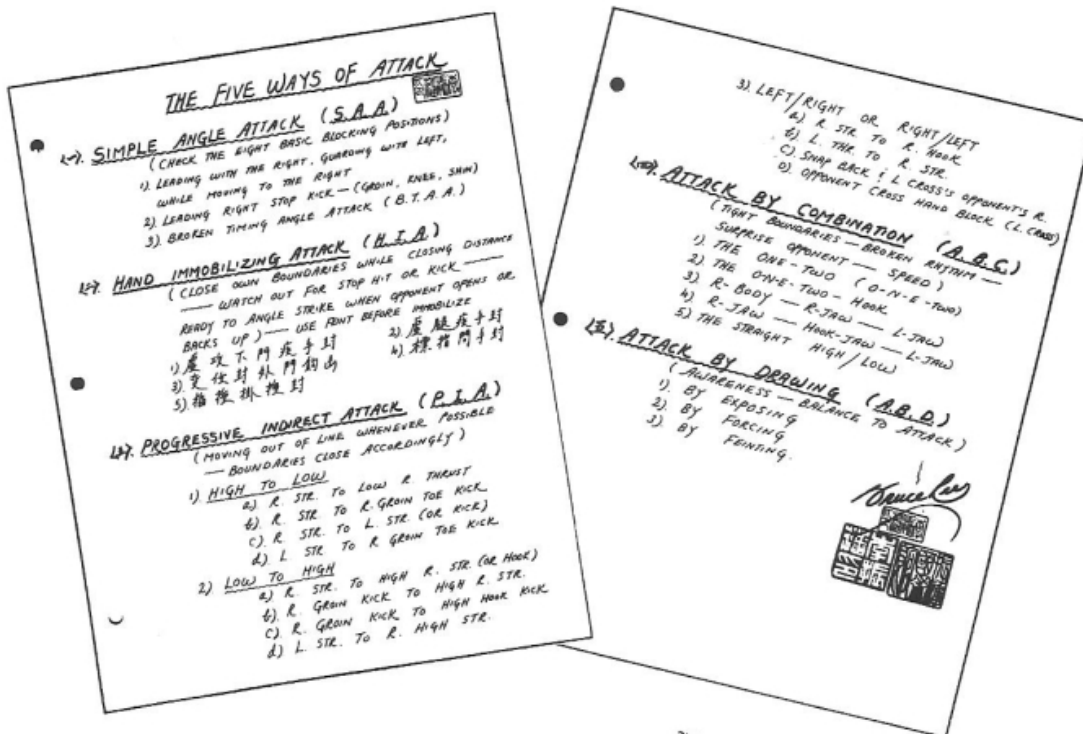 THE FIVE WAYS OF ATTACK
(一). SIMPLE ANGLE ATTACK (S.A.A.)
(CHECK THE EIGHT BASIC BLOCKING POSITIONS)
1). LEADING WITH THE RIGHT, GUARDING WITH LEFT,
WHILE MOVING TO THE RIGHT
2). LEADING RIGHT STOP KICK — (GROIN, KNEE, SHIN)
3). BROKEN TIMING ANGLE ATTACK (B.T.A.A.)
(二). HAND IMMOBILIZING ATTACK (H.I.A.)
(CLOSE OWN BOUNDARIES WHILE CLOSING DISTANCE
— WATCH OUT FOR STOP HIT OR KICK —
READY TO ANGLE STRIKE WHEN OPPONENT OPENS OR
BACKS UP) — USE FEINT BEFORE IMMOBILIZE
1). 攻下門 手封 2). 手封
3). 封外門 4). 標指問手封
5). 指 掛 封
(三). PROGRESSIVE INDIRECT ATTACK (P.I.A.)
(MOVING OUT OF LINE WHENEVER POSSIBLE
— BOUNDARIES CLOSE ACCORDINGLY)
1). HIGH TO LOW
a). R. STR. TO LOW R THRUST
b). R. STR TO R. GROIN TOE KICK
c). R. STR TO L. STR. (OR KICK)
d). L STR TO R GROIN TOE KICK
2). LOW TO HIGH
a). R. STR. TO HIGH R. STR. (OR HOOK)
b). R. GROIN KICK TO HIGH R. STR.
c). R. GROIN KICK TO HIGH HOOK KICK
d). L STR. TO R. HIGH STR.
3). LEFT/RIGHT OR RIGHT/LEFT
a). R. STR TO R. HOOK
b). L. THR. TO R. STR.
c). SNAP BACK & L CROSS'S OPPONENT'S R.
d). OPPONENT CROSS HAND BLOCK (L. CROSS)
(四). ATTACK BY COMBINATION (A.B.C.)
(TIGHT BOUNDARIES — BROKEN RHYTHM —
SURPRISE OPPONENT — SPEED)
1). THE ONE-TWO (O-N-E-TWO)
2). THE O-N-E-TWO-HOOK
3). R-BODY — R-JAW — L-JAW
4). R-JAW — HOOK-JAW — L-JAW
5) THE STRAIGHT HIGH/LOW
(五). ATTACK BY DRAWING (A.B.D.)
(AWARENESS — BALANCE TO ATTACK)
1). BY EXPOSING
2). BY FORCING
3). BY FEINTING.
Bruce Lee